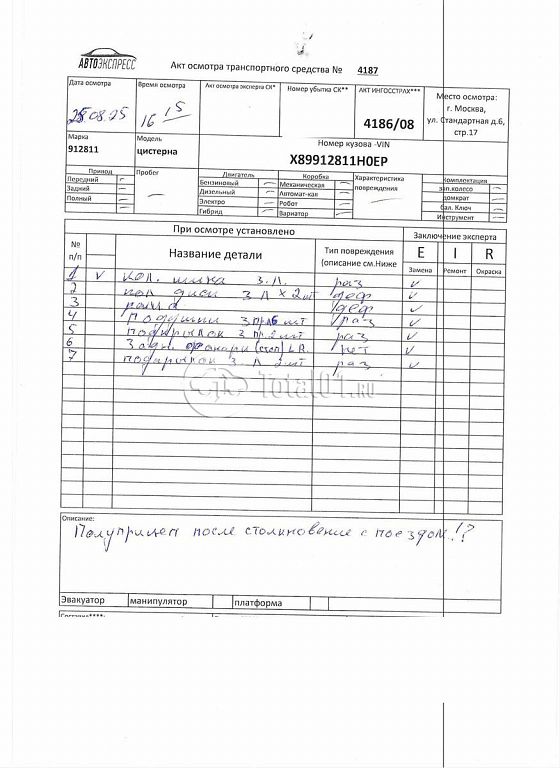 АВТОЭКСПРЕСС Акт осмотра транспортного средства № 4187
Дата осмотра Время осмотра Акт осмотра эксперта СК* Номер убытка СК** АКТ ИНГОССТРАХ*** Место осмотра:
25.08.25 16 15 4186/08 г. Москва,
ул. Стандартная д.6,
стр.17
Марка Модель Номер кузова -VIN
912811 цистерна X89912811H0EP
Привод Пробег Двигатель Коробка Характеристика повреждения Комплектация
Передний Бензиновый Механическая зап.колесо
Задний Дизельный Автомат-кая домкрат
Полный Электро Робот бал. Ключ
Гибрид Вариатор Инструмент
При осмотре установлено Заключение эксперта
№ п/п Название детали Тип повреждения (описание см.Ниже E I R
Замена Ремонт Окраска
1 v кол. шина з.л. раз v
2 кол диски 3 Л х 2 шт деф v
3 рама деф v
4 подушки з шт раз v
5 подкрылок з пр. 2 шт раз v
6 Задн. фонари (стоп) L R. v
7 подкрылок з. л 2 шт раз v
Total01.RU
Описание:
Полуприцеп после столкновение с поездом!?
Эвакуатор манипулятор платформа